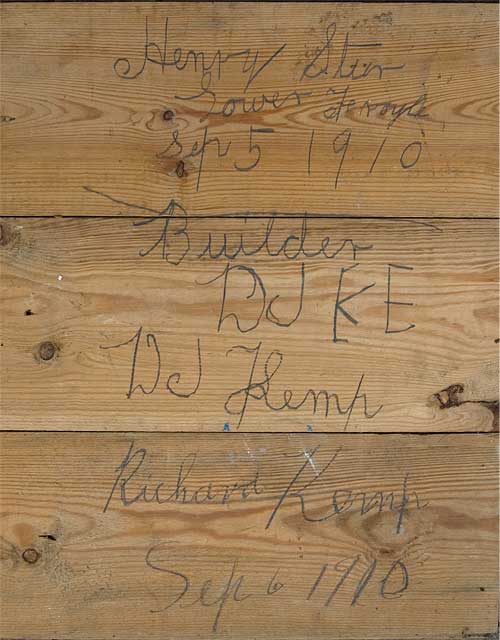 Henry Starr
Lower Feroyle
Sep 5 1910
Builder
DJ KE
DJ Kemp
Richard Kemp
Sep 6 1910